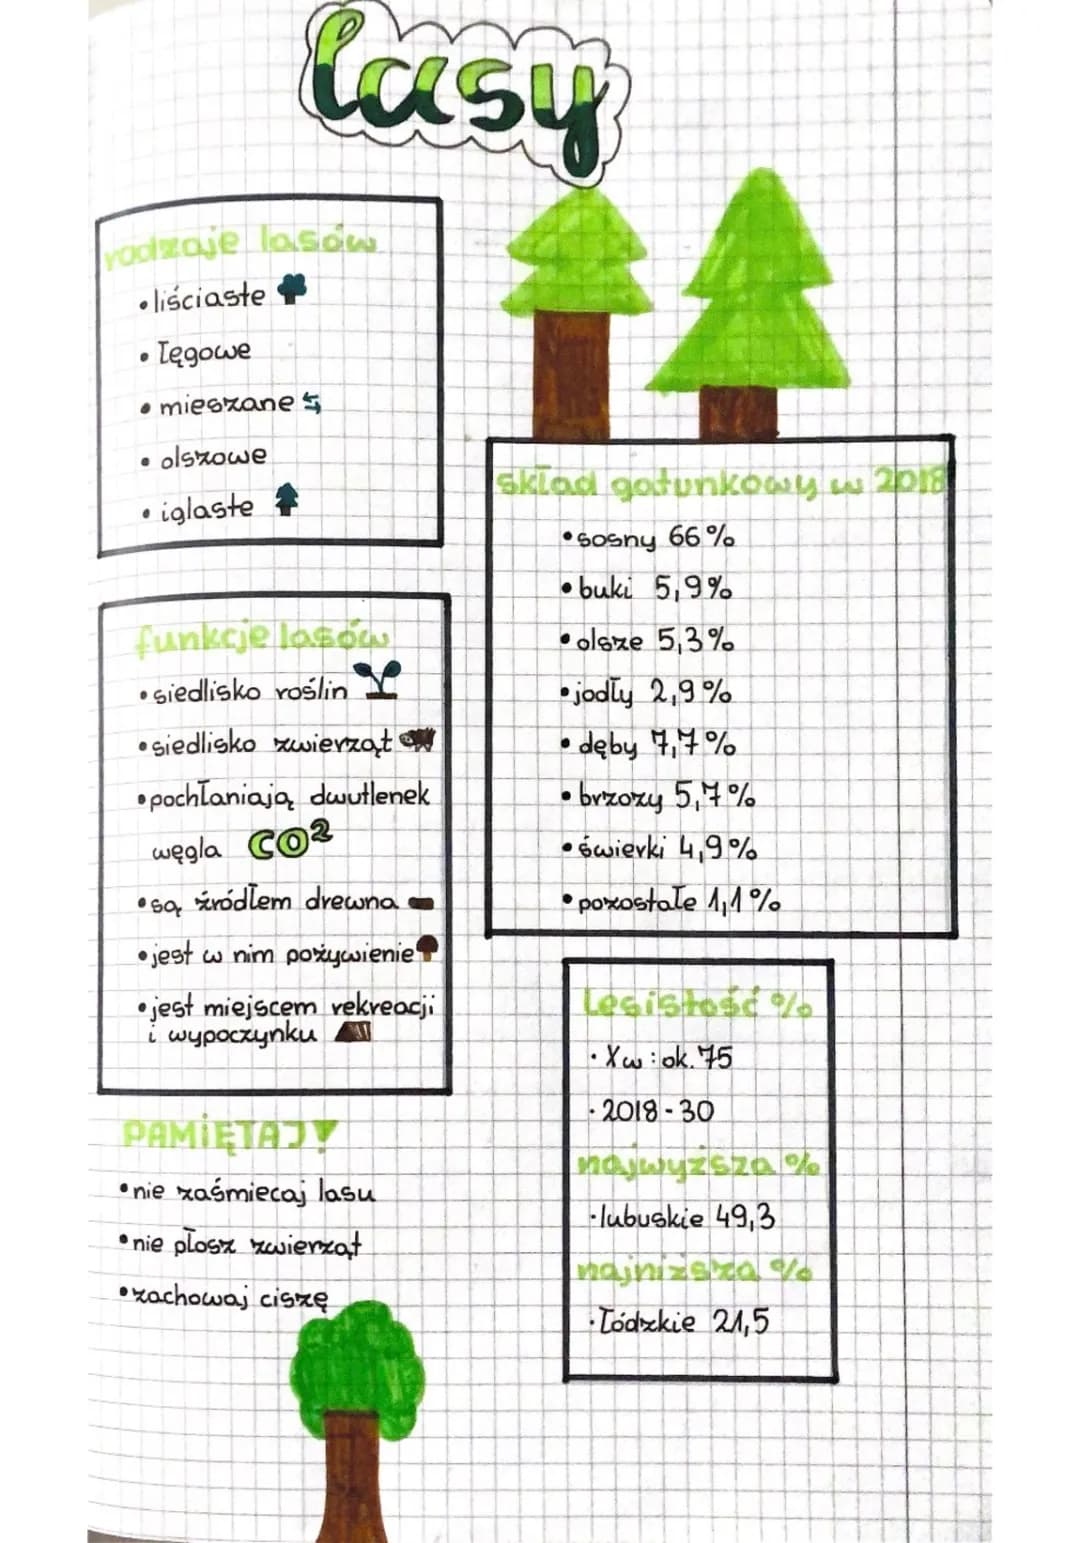 lasy
rodzaje lasów
• liściaste
• łęgowe
• mieszane
• olszowe
• iglaste
skład gatunkowy w 2018
• sosny 66%
• buki 5,9%
• olsze 5,3%
• jodły 2,9%
• dęby 7,7%
• brzozy 5,7%
• świerki 4,9%
• pozostałe 1,1%
funkcje lasów
• siedlisko roślin
• siedlisko zwierząt
• pochłaniają dwutlenek
węgla CO²
• są źródłem drewna
• jest w nim pożywienie
• jest miejscem rekreacji
i wypoczynku
Lesistość %
· Xw : ok. 75
· 2018 - 30
najwyższa %
· lubuskie 49,3
najniższa %
· łódzkie 21,5
PAMIĘTAJ!
• nie zaśmiecaj lasu
• nie płosz zwierząt
• zachowaj ciszę